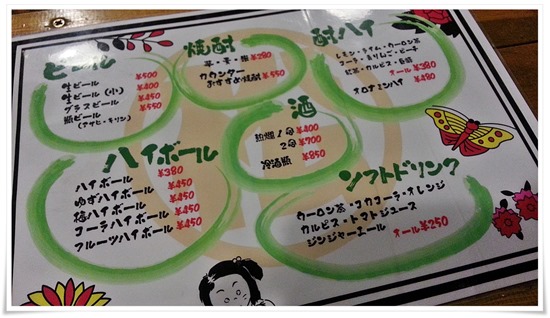 ビール
生ビール ¥500
生ビール(小) ¥400
グラスビール ¥450
瓶ビール ¥550
(アサヒ・キリン)
焼酎
芋・麦・米 ¥280
カウンター
おすすめ焼酎 ¥550
酎ハイ
レモン・ライム・ウーロン茶
コーラ・青りんご・ピーチ
紅茶・カルピス・白桃
オール ¥380
オロナミンハイ ¥480
酒
熱燗 1合 ¥400
2合 ¥700
冷酒瓶 ¥850
ハイボール
ハイボール ¥380
ゆずハイボール ¥450
梅ハイボール ¥450
コーラハイボール ¥450
フルーツハイボール ¥450
ソフトドリンク
ウーロン茶・コカコーラ・オレンジ
カルピス・トマトジュース
ジンジャーエール オール ¥250